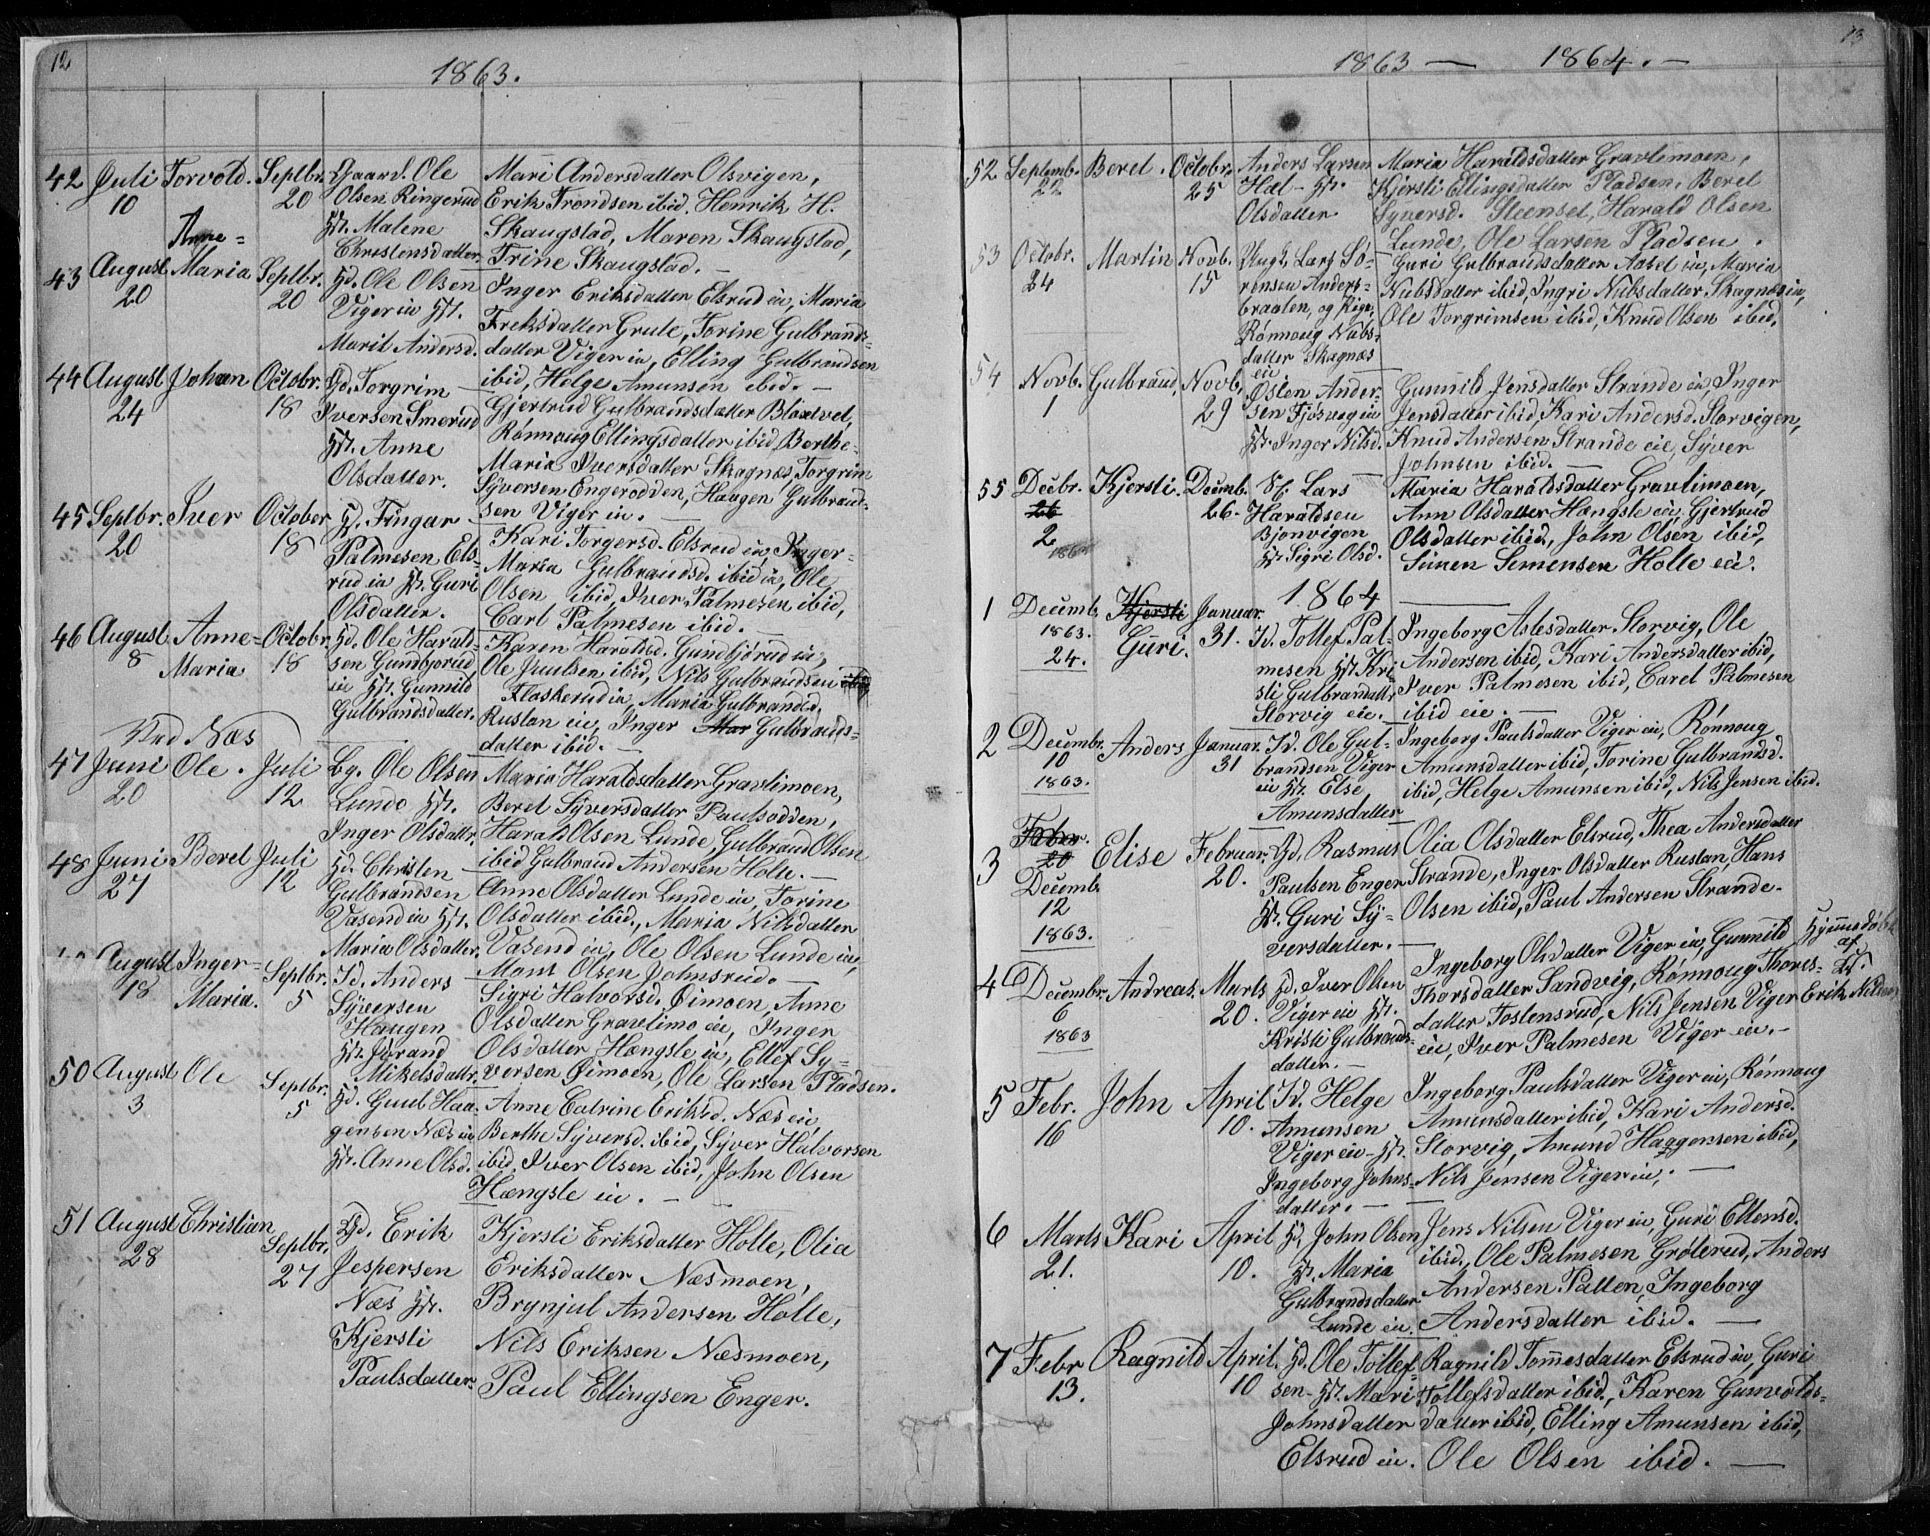 12
1863.
42 Juli 10
Torvold.
Septbr. 20
Gaard. Ole
Olsen Ringerud
Hst. Malene
Christensdatter.
Mari Andersdatter Olsvigen,
Erik Trondsen ibid. Henrik H.
Skaugstad, Maren Skaugstad,
Trine Skaugstad. —
43 August 20
Anne=
Maria
Septbr. 20
Gd. Ole Olsen
Viger eie Hst.
Marit Andersd.
Inger Eriksdatter Elsrud eie, Maria
Freksdatter Grute, Torine Gulbrands=
datter Viger eie, Elling Gulbrandsen
ibid, Helge Amunsen ibid. —
44 August 24
Johan
Octobr. 18
Gd. Torgrim
Iversen Smerud
Hst. Anne
Olsdatter.
Gjertrud Gulbrandsdatter Blaxtvet,
Rønnoug Ellingsdatter ibid, Berthe=
Maria Iversdatter Skagnæs, Torgrim
Syversen Engerodden, Haagen Gulbrand=
sen Viger eie. —
45 Septbr. 20
Iver
October 18
Gd. Fingar
Palmesen Els=
rud eie Hst. Guri
Olsdatter.
Kari Torgersd. Elsrud eie, Inger=
Maria Gulbrandsd. ibid eie, Ole
Olsen ibid, Iver Palmesen ibid,
Carl Palmesen ibid. —
46 August 8
Anne=
Maria
Octobr. 18
Gd. Ole Harald=
sen Gundbjørud
eie Hst. Gunnild
Gulbrandsdatter.
Karen Haraldsd. Gundbjørud eie,
Ole Juulsen ibid, Nils Gulbrandsen
Flaskerud eie, Maria Gulbrandsd.
Rustan eie, Inger Mar Gulbrands=
datter ibid. —
Ved Næs
47 Juni 20
Ole.
Juli 12
Lg. Ole Olsen
Lunde Hst.
Inger Olsdattr.
Maria Haraldsdatter Gravlimoen,
Beret Syversdatter Paulsodden,
Harald Olsen Lunde, Gulbrand Olsen
ibid Gulbrand Andersen Holte. —
48 Juni 27
Beret
Juli 12
Gd. Christen
Gulbrandsen
Vasend eie Hst.
Maria Olsdatter.
Anne Olsdatter Lunde eie, Torine
Olsdatter ibid, Maria Nilsdatter
Vasend eie, Ole Olsen Lunde eie,
Mons Olsen Johnsrud. —
49 August 18
Inger=
Maria.
Septbr. 5
Id. Anders
Syversen
Haugen
Hst. Jørand
Mikelsdattr.
Sigri Halvorsd. Øimoen, Anne
Olsdatter Gravlimo eie, Inger
Olsdatter Hængsle eie, Ellef Sy=
versen Øimoen, Ole Larsen Pladsen.
50 August 3
Ole
Septbr. 5
Gd. Guul Haa=
gensen Næs eie
Hst. Anne Olsd.
Anne Catrine Eriksd. Næs eie,
Berthe Syversd. ibid, Syver Halvorsen
ibid, Iver Olsen ibid, John Olsen
Hængsle eie. —
51 August 28
Christian
Septbr. 27
Gd. Erik
Jespersen
Næs Hst.
Kjersti
Paulsdatter.
Kjersti Eriksdatter Holte, Olia
Eriksdatter Næsmoen,
Brynjul Andersen Holte,
Nils Eriksen Næsmoen,
Paul Ellingsen Enger.
13
1863 — 1864. —
52 Septemb. 22
Beret.
Octobr. 25
Anders Larsen
Hal— Hst.
Olsdatter
Maria Haraldsdatter Gravlimoen,
Kjersti Ellingsdatter Pladsen, Beret
Syversd. Steenset, Harald Olsen
Lunde, Ole Larsen Pladsen.
53 Octobr. 24
Martin
Novb. 15
Ungk. Lars Sø=
rensen Anders=
braaten, og Pige
Rønnoug Nubs=
datter Skagnæs
eie
Guri Gulbrandsdatter Aasel eie, Maria
Nubsdatter ibid, Ingri Nubsdatter Skagnæs eie,
Ole Torgrimsen ibid, Knud Olsen ibid.
54 Novb. 1
Gulbrand.
Novb. 29
Østen Ander=
sen Fjøsvog eie
Hst. Inger Nilsd.
Gunnild Jensdatter Strande eie, Inger
Jensdatter ibid, Kari Andersd. Storvigen,
Knud Andersen Strande eie, Syver
Johnsen ibid. —
55 Decbr. 26 2
1864
Kjersti.
Decemb. 26.
Lars
Haraldsen
Bjonvigen
Hst. Sigri Olsd.
Maria Haraldsdatter Gravlimoen,
Ann Olsdatter Hængsle eie, Gjertrud
Olsdatter ibid, John Olsen ibid,
Simen Simensen Holte eie.
1864
1 Decemb. 1863. 24.
Kjersti
Guri.
Januar. 31.
Id. Tollef Pal=
mesen Hst. Kri
sti Gulbrandsdattr
Storvig eie.
Ingeborg Aslesdatter Storvig, Ole
Andersen ibid, Kari Andersdatter ibid,
Iver Palmesen ibid, Carel Palmesen
ibid eie. —
2 Decembr. 10 1863.
Anders
Januar. 31
Id. Ole Gul=
brandsen Viger
eie Hst. Else
Amunsdatter
Ingeborg Paulsdatter Viger eie, Rønnoug
Amunsdatter ibid, Torine Gulbrandsd.
ibid, Helge Amunsen ibid, Nils Jensen ibid.
3 Feber. 20
Decemb. 12 1863.
Elise
Februar. 20.
Gd. Rasmus
Paulsen Enger
Hst. Guri Sy=
versdatter. —
Olia Olsdatter Elsrud, Thea Andersdatter
Strande, Inger Olsdatter Rustan, Hans
Olsen ibid, Paul Andersen Strande.
4 Decembr. 6 1863
Andreas.
Marts 20.
Gd. Iver Olsen
Viger eie Hst.
Kristi Gulbrands=
datter. —
Ingeborg Olsdatter Viger eie, Gunnild
Thorsdatter Sandvig, Rønnoug Thores=
datter Tostensrud, Nils Jensen Viger
eie, Iver Palmesen Viger eie. —
Hjemmedøbt
af
Hst.
Erik Nilsen
5 Febr. 16
John
April 10.
Id. Helge
Amunsen
Viger eie— Hst.
Ingeborg Johns=
datter. —
Ingeborg Paulsdatter Viger eie, Rønnoug
Amunsdatter ibid, Kari Andersd.
Storvig, Amund Haagensen ibid,
Nils Jensen Viger eie. —
6 Marts 21.
Kari
April 10.
Gd. John Olsen
Hst. Maria
Gulbrandsdatter
Lunde eie.
Jens Nilsen Viger eie, Guri Ellensd.
ibid, Ole Palmesen Grøterud, Anders
Andersen Patten, Ingeborg
Andersdatter ibid. —
7 Febr 13.
Ragnild
April. 10
Gd. Ole Tollef=
sen— Hst. Mari
Johnsdatter
Elsrud eie.
Ragnild Tommesdatter Elsrud eie, Guri
Tollefsdatter ibid, Karen Gunvolds=
datter ibid, Elling Amunsen ibid,
Ole Olsen ibid. —